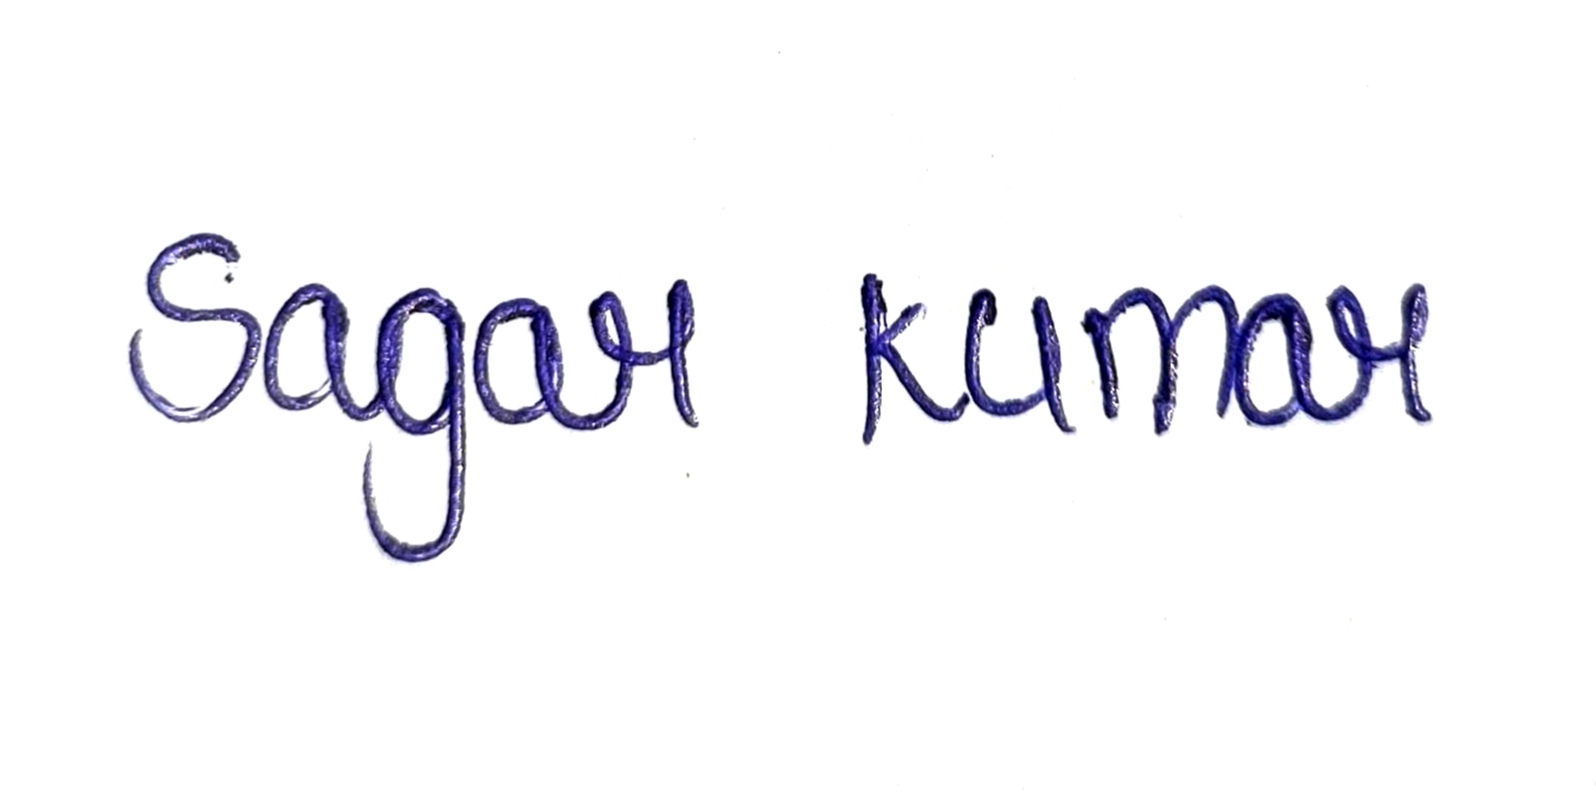 Sagar Kumar